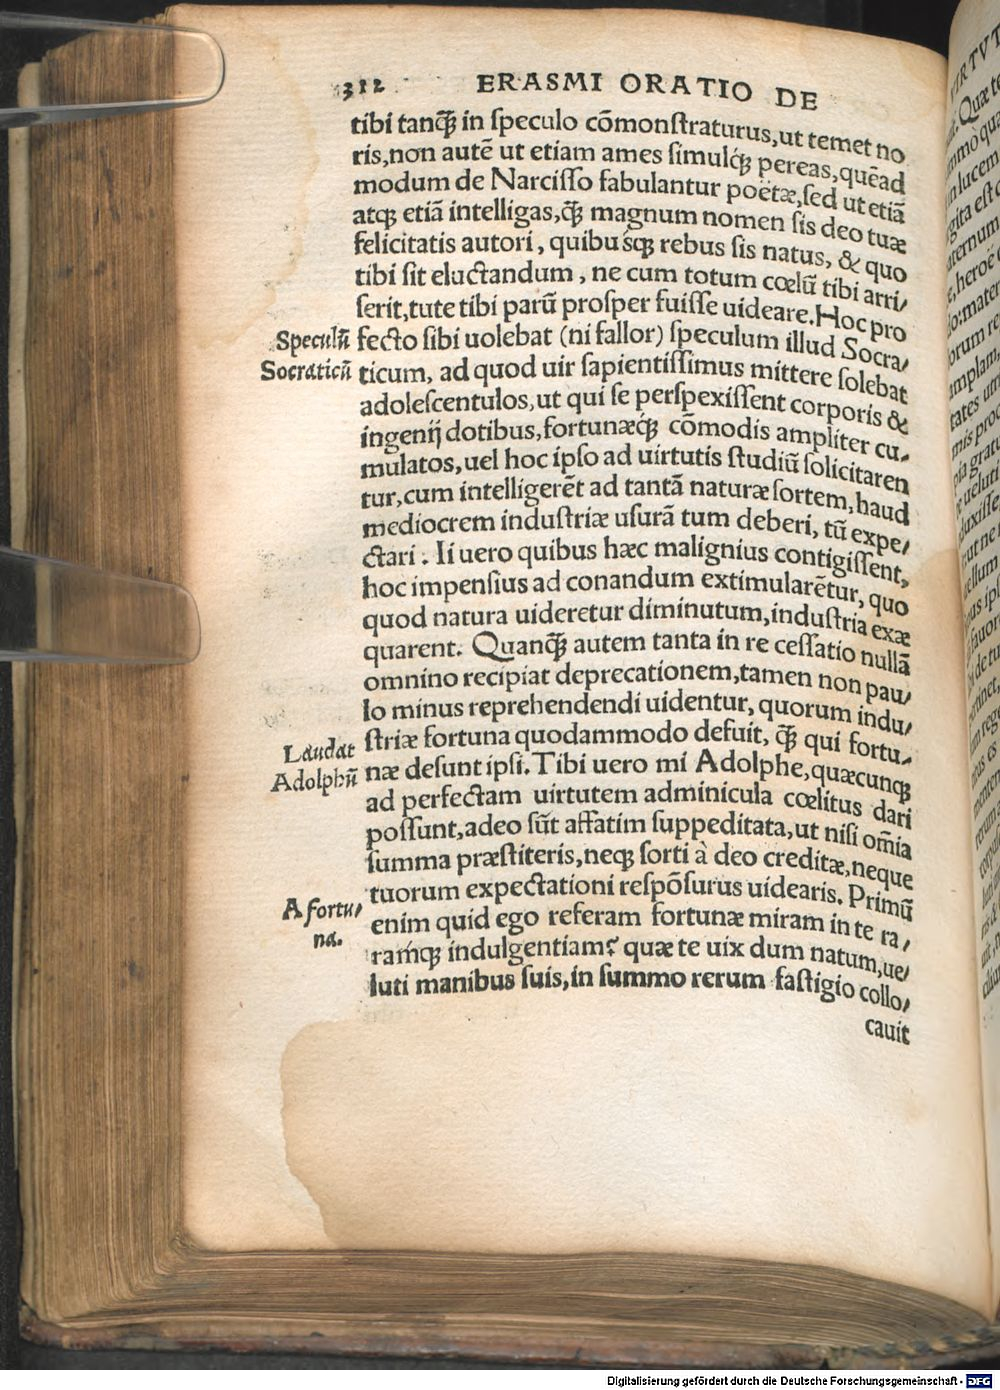 312 ERASMI ORATIO DE
tibi tanq̃ꝫ in ſpeculo cõmonſtraturus, ut temet no
ris, non autẽ ut etiam ames ſimulq́ꝫ pereas, quẽad
modum de Narciſſo fabulantur poëtæ, ſed ut etiã
atqꝫ etiã intelligas, q̃ꝫ magnum nomen ſis deo tuæ
felicitatis autori, quibuśqꝫ rebus ſis natus, & quo
tibi ſit eluctandum, ne cum totum cœlũ tibi arri/
ſerit, tute tibi parũ proſper fuiſſe uideare. Hoc pro
Speculũ fecto ſibi uolebat (ni fallor) ſpeculum illud Socra/
Socraticũ ticum, ad quod uir ſapientiſſimus mittere ſolebat
adoleſcentulos, ut qui ſe perſpexiſſent corporis &
ingenij dotibus, fortunæq́ꝫ cõmodis ampliter cu/
mulatos, uel hoc ipſo ad uirtutis ſtudiũ ſolicitaren
tur, cum intelligerẽt ad tantã naturæ ſortem, haud
mediocrem induſtriæ uſurã tum deberi, tũ expe/
ctari. Ii uero quibus hæc malignius contigiſſent,
hoc impenſius ad conandum extimularẽtur, quo
quod natura uideretur diminutum, induſtria exæ
quarent. Quanq̃ꝫ autem tanta in re ceſſatio nullã
omnino recipiat deprecationem, tamen non pau/
lo minus reprehendendi uidentur, quorum indu/
Laudat ſtriæ fortuna quodammodo defuit, q̃ꝫ qui fortu/
Adolphũ næ deſunt ipſi. Tibi uero mi Adolphe, quæcunqꝫ
ad perfectam uirtutem adminicula cœlitus dari
poſſunt, adeo ſũt affatim ſuppeditata, ut niſi om̃ia
ſumma præſtiteris, neqꝫ ſorti à deo creditæ, neque
tuorum expectationi reſpõſurus uidearis. Primũ
A fortu/ enim quid ego referam fortunæ miram in te ra/
na. raḿqꝫ indulgentiam? quæ te uix dum natum, ue/
luti manibus ſuis, in ſummo rerum faſtigio collo/
cauit
Digitalisierung gefördert durch die Deutsche Forschungsgemeinschaft - DFG